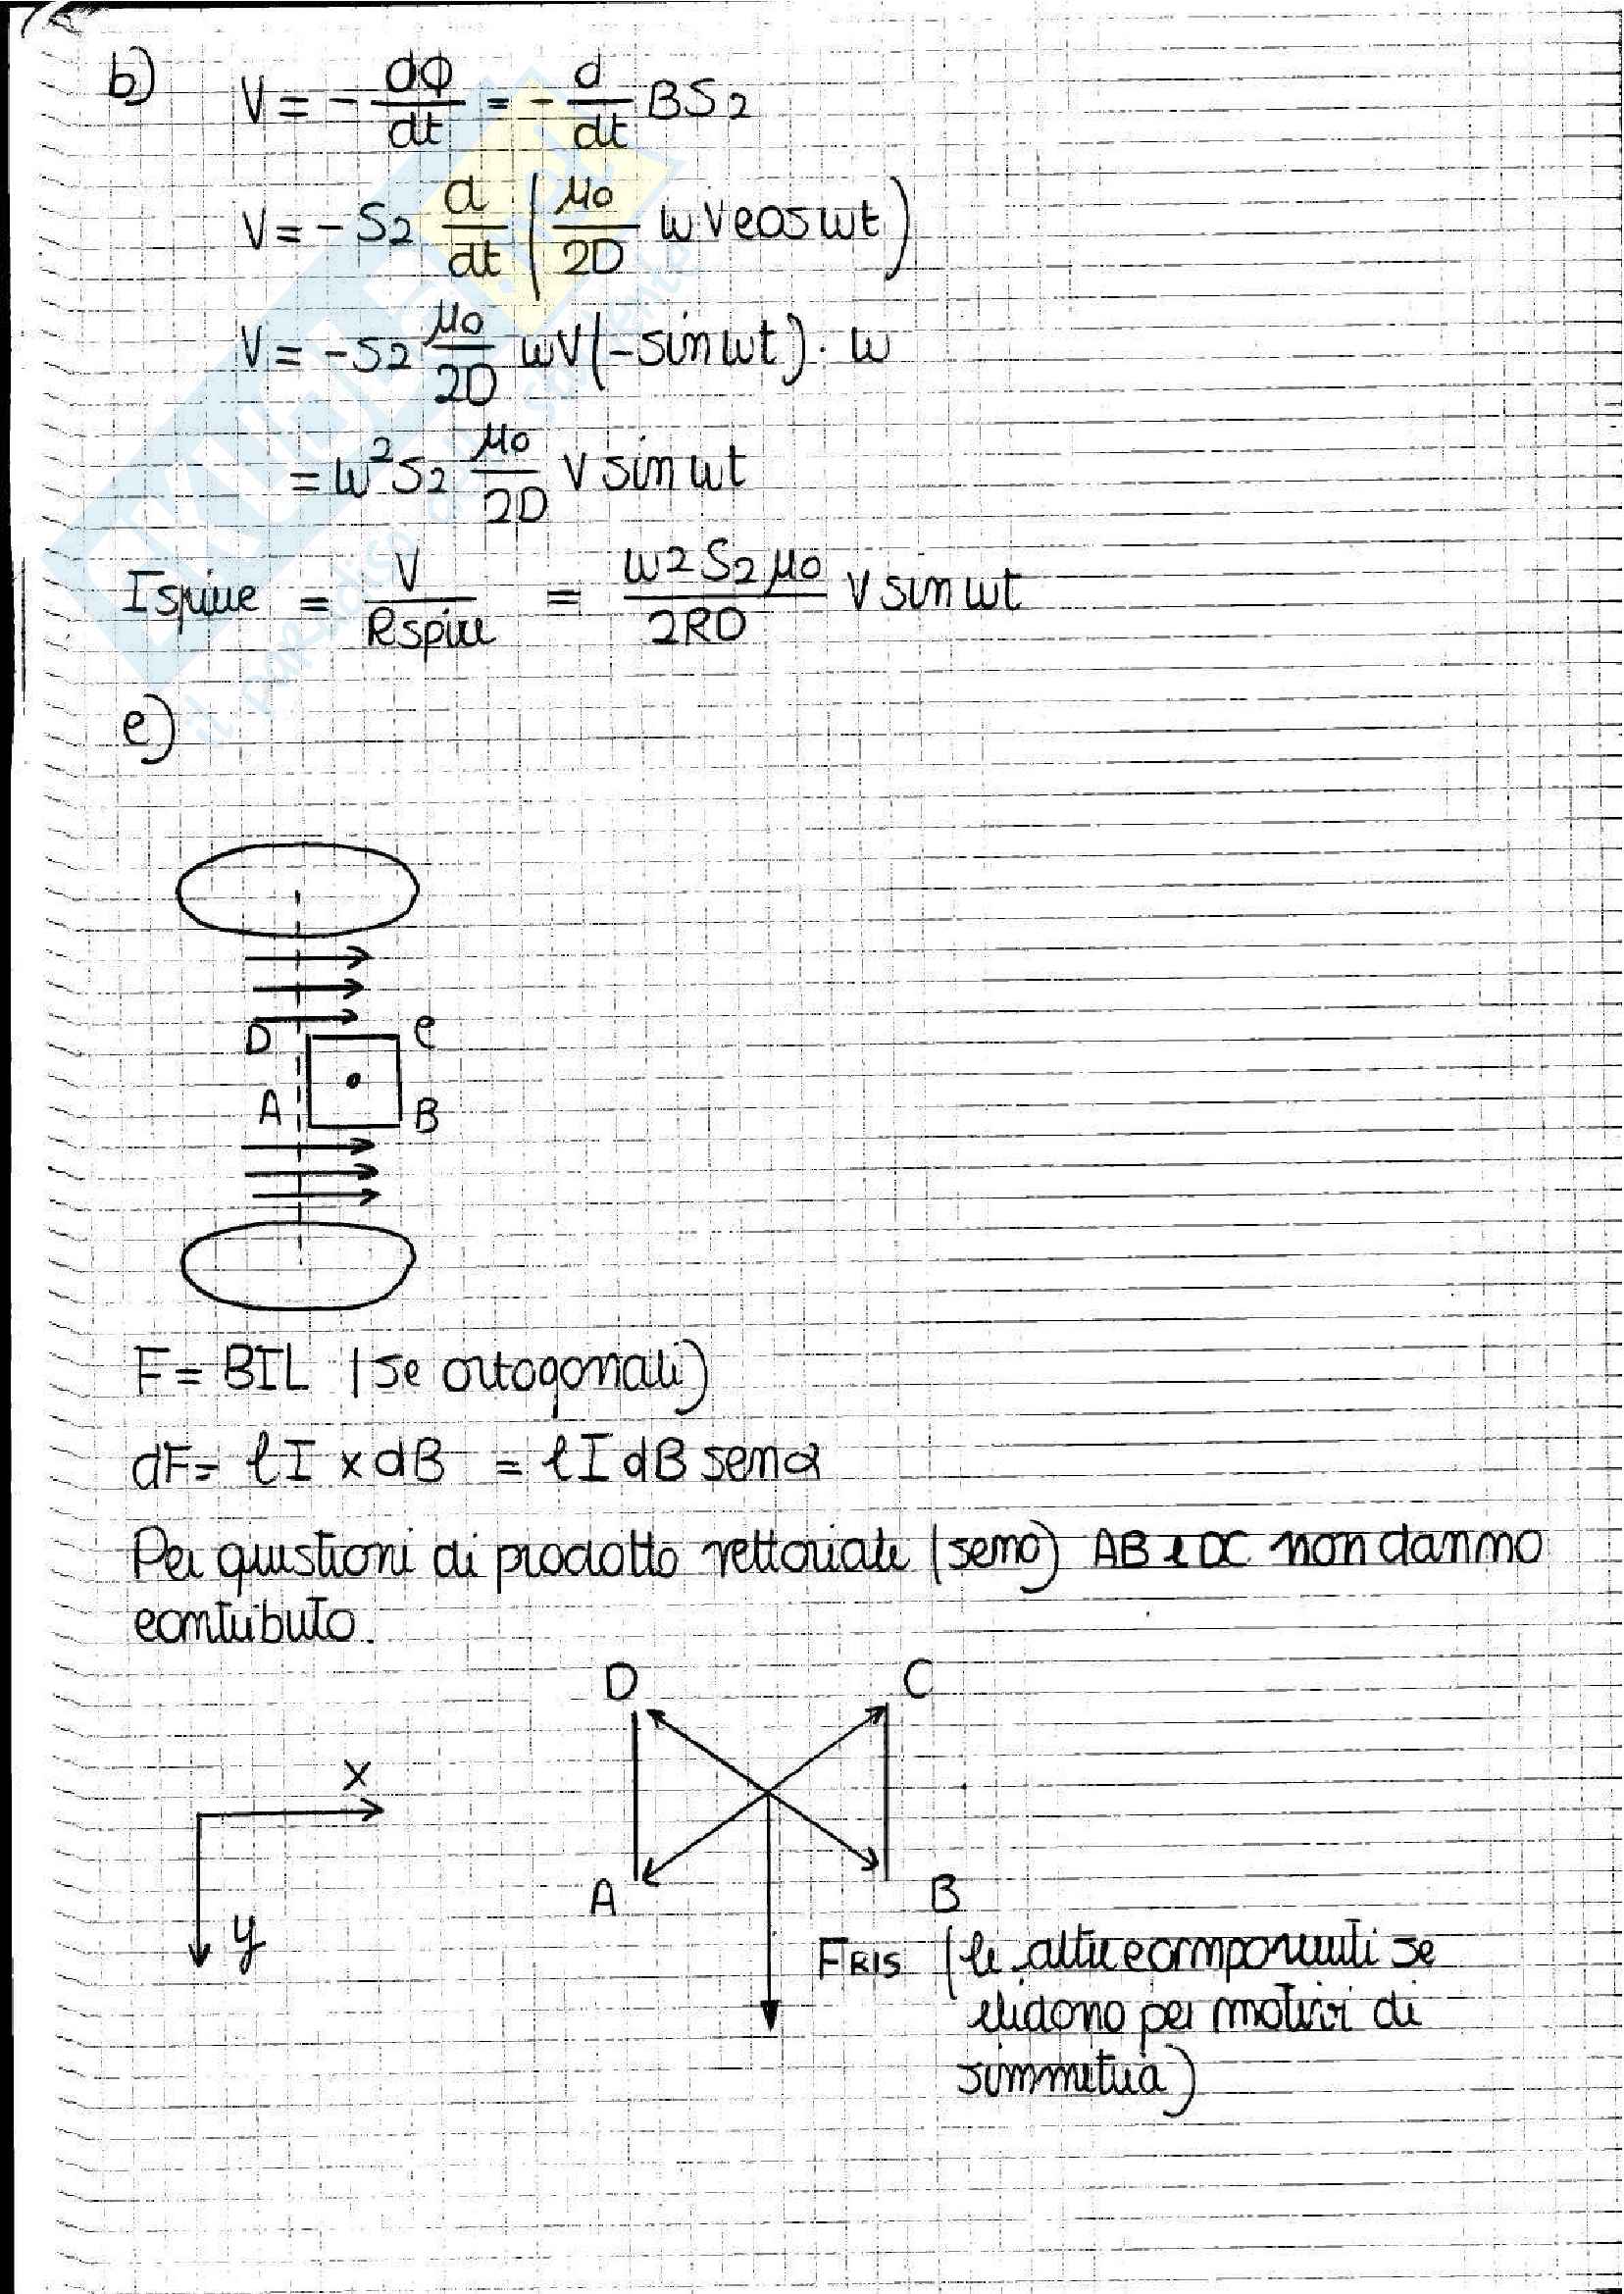 b) V = - dΦ/dt = - d/dt BS2
V = - S2 d/dt (μ0/2D ω V cos ωt)
V = - S2 μ0/2D ωV(-sin ωt) · ω
= ω² S2 μ0/2D V sin ωt
Ispire = V/Rspire = ω2 S2 μ0/2RD V sin ωt
c)
D C
A B
F = BIL (se ortogonali)
dF = lI x dB = lI dB sen α
Per questioni di prodotto vettoriale (seno) AB e DC non danno
contributo.
D C
x
A B
y
FRIS (le altre componenti se
elidono per motivi di
simmetria)